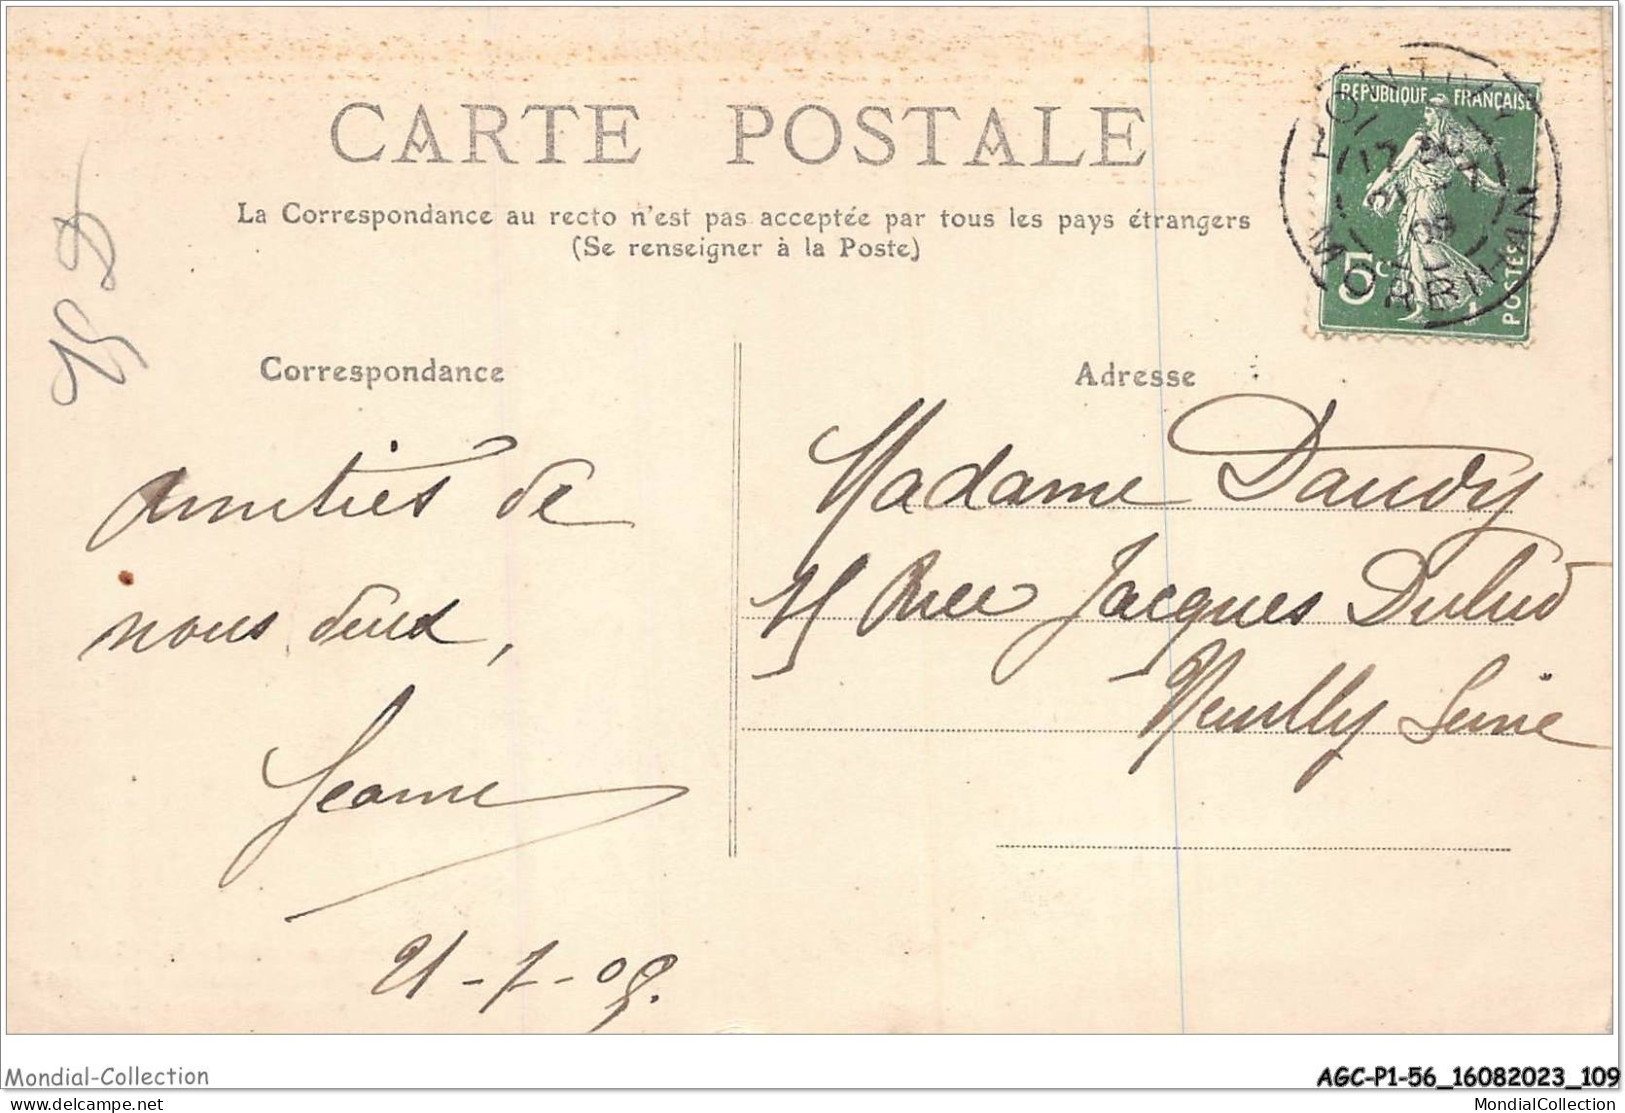 CARTE POSTALE
La Correspondance au recto n'est pas acceptée par tous les pays étrangers
(Se renseigner à la Poste)
REPUBLIQUE FRANÇAISE
5c
POSTES
PONTIVY
MORBIHAN
Correspondance
Adresse
Amitiés de
nous deux,
Jeanne
21-7-09.
Madame Dauvy
15 Rue Jacques Dulud
Neuilly Seine
Mondial-Collection
AGC-P1-56_16082023_109
delcampe.net
MondialCollection